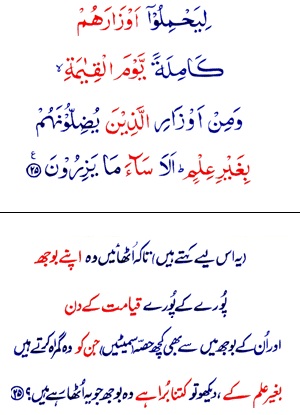 لِيَحْمِلُوْٓا اَوْزَارَهُمْ
كَامِلَةً يَّوْمَ الْقِيٰمَةِ ۙ
وَمِنْ اَوْزَارِ الَّذِيْنَ يُضِلُّوْنَهُمْ
بِغَيْرِ عِلْمٍ ؕ اَلَا سَآءَ مَا يَزِرُوْنَ ﴿۲۵﴾ ع
(یہ اس لیے کہتے ہیں) تاکہ اُٹھائیں وہ اپنے بوجھ
پُورے کے پُورے قیامت کے دن
اور اُن کے بوجھ میں سے بھی کچھ حصّہ سمیٹیں، جن کو وہ گمراہ کرتے ہیں
بغیر علم کے، دیکھو تو کتنا بُرا ہے وہ بوجھ جو یہ اُٹھا رہے ہیں؟ ﴿۲۵﴾